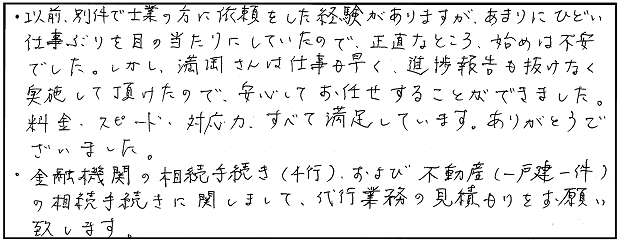 ・以前、別件で士業の方に依頼をした経験がありますが、あまりにひどい
仕事ぶりを目の当たりにしていたので、正直なところ、始めは不安
でした。しかし、満岡さんは仕事も早く、進捗報告も抜けなく
実施して頂けたので、安心してお任せすることができました。
料金、スピード、対応力、すべて満足しています。ありがとうで
ざいました。
・金融機関の相続手続き(4行)、および不動産(一戸建一件)
の相続手続きに関しまして、代行業務の見積もりをお願い
致します。